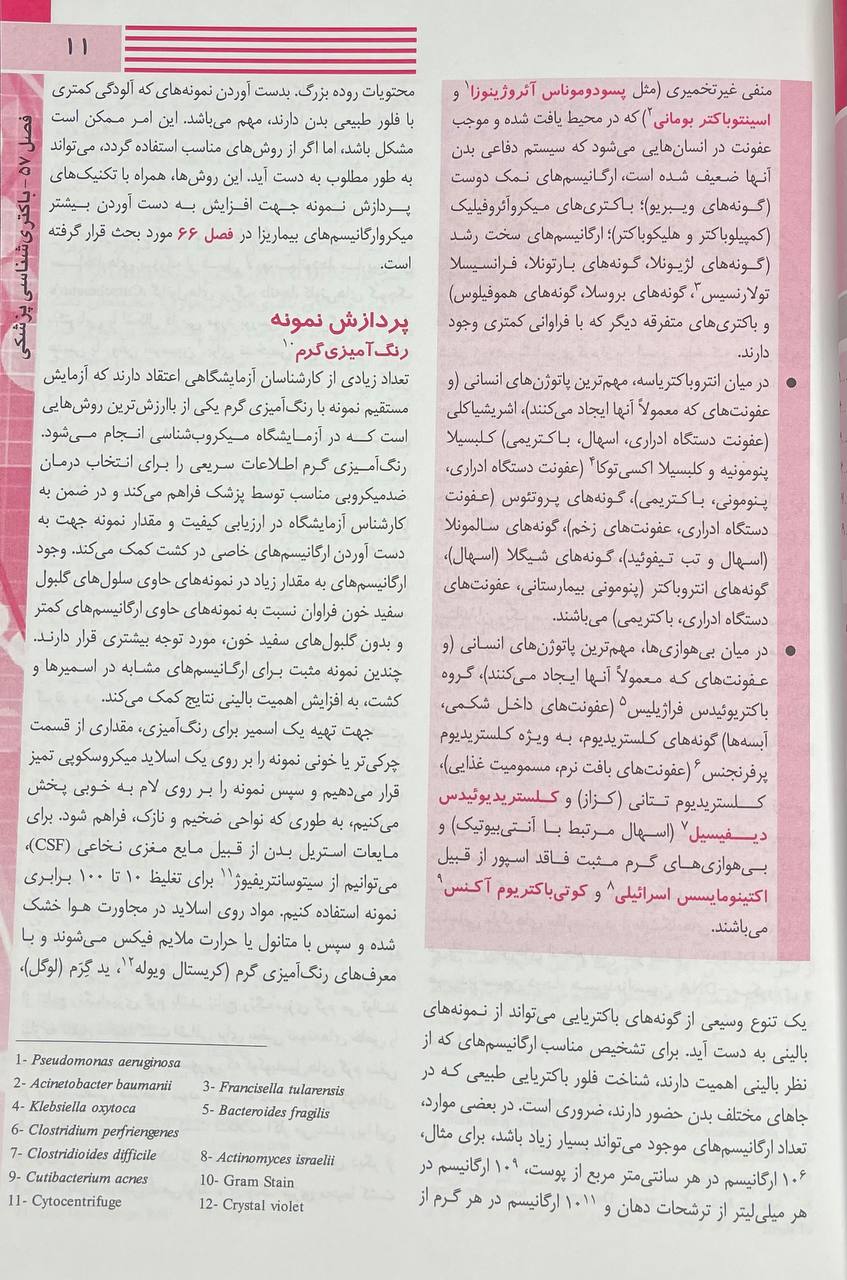 ۱۱
فصل ۵۷ - باکتری‌شناسی پزشکی
منفی غیرتخمیری (مثل پسودوموناس آئروژینوزا۱ و
اسینتوباکتر بومانی۲) که در محیط یافت شده و موجب
عفونت در انسان‌هایی می‌شود که سیستم دفاعی بدن
آنها ضعیف شده است، ارگانیسم‌های نمک دوست
(گونه‌های ویبریو)؛ باکتری‌های میکروآئروفیلیک
(کمپیلوباکتر و هلیکوباکتر)؛ ارگانیسم‌های سخت رشد
(گونه‌های لژیونلا، گونه‌های بارتونلا، فرانسیسلا
تولارنسیس۳، گونه‌های بروسلا، گونه‌های هموفیلوس)
و باکتری‌های متفرقه دیگر که با فراوانی کمتری وجود
دارند.
● در میان انتروباکتریاسه، مهم‌ترین پاتوژن‌های انسانی (و
عفونت‌های که معمولاً آنها ایجاد می‌کنند)، اشریشیاکلی
(عفونت دستگاه ادراری، اسهال، باکتریمی) کلبسیلا
پنومونیه و کلبسیلا اکسی‌توکا۴ (عفونت دستگاه ادراری،
پنومونی، باکتریمی)، گونه‌های پروتئوس (عفونت
دستگاه ادراری، عفونت‌های زخم)، گونه‌های سالمونلا
(اسهال و تب تیفوئید)، گونه‌های شیگلا (اسهال)،
گونه‌های انتروباکتر (پنومونی بیمارستانی، عفونت‌های
دستگاه ادراری، باکتریمی) می‌باشند.
● در میان بی‌هوازی‌ها، مهم‌ترین پاتوژن‌های انسانی (و
عفونت‌های که معمولاً آنها ایجاد می‌کنند)، گروه
باکتروئیدس فراژیلیس۵ (عفونت‌های داخل شکمی،
آبسه‌ها) گونه‌های کلستریدیوم، به ویژه کلستریدیوم
پرفرنجنس۶ (عفونت‌های بافت نرم، مسمومیت غذایی)،
کلستریدیوم تتانی (کزاز) و کلستریدیوئیدس
دیفیسیل۷ (اسهال مرتبط با آنتی‌بیوتیک) و
بی‌هوازی‌های گرم مثبت فاقد اسپور از قبیل
اکتینومایسس اسرائیلی۸ و کوتی‌باکتریوم آکنس۹
می‌باشند.
یک تنوع وسیعی از گونه‌های باکتریایی می‌تواند از نمونه‌های
بالینی به دست آید. برای تشخیص مناسب ارگانیسم‌های که از
نظر بالینی اهمیت دارند، شناخت فلور باکتریایی طبیعی که در
جاهای مختلف بدن حضور دارند، ضروری است. در بعضی موارد،
تعداد ارگانیسم‌های موجود می‌تواند بسیار زیاد باشد، برای مثال،
۱۰۶ ارگانیسم در هر سانتی‌متر مربع از پوست، ۱۰۹ ارگانیسم در
هر میلی‌لیتر از ترشحات دهان و ۱۰۱۱ ارگانیسم در هر گرم از
محتویات روده بزرگ. بدست آوردن نمونه‌های که آلودگی کمتری
با فلور طبیعی بدن دارند، مهم می‌باشد. این امر ممکن است
مشکل باشد، اما اگر از روش‌های مناسب استفاده گردد، می‌تواند
به طور مطلوب به دست آید. این روش‌ها، همراه با تکنیک‌های
پردازش نمونه جهت افزایش به دست آوردن بیشتر
میکروارگانیسم‌های بیماریزا در فصل ۶۶ مورد بحث قرار گرفته
است.
پردازش نمونه
رنگ‌آمیزی گرم۱۰
تعداد زیادی از کارشناسان آزمایشگاهی اعتقاد دارند که آزمایش
مستقیم نمونه با رنگ‌آمیزی گرم یکی از باارزش‌ترین روش‌هایی
است که در آزمایشگاه میکروب‌شناسی انجام می‌شود.
رنگ‌آمیزی گرم اطلاعات سریعی را برای انتخاب درمان
ضدمیکروبی مناسب توسط پزشک فراهم می‌کند و در ضمن به
کارشناس آزمایشگاه در ارزیابی کیفیت و مقدار نمونه جهت به
دست آوردن ارگانیسم‌های خاصی در کشت کمک می‌کند. وجود
ارگانیسم‌های به مقدار زیاد در نمونه‌های حاوی سلول‌های گلبول
سفید خون فراوان نسبت به نمونه‌های حاوی ارگانیسم‌های کمتر
و بدون گلبول‌های سفید خون، مورد توجه بیشتری قرار دارند.
چندین نمونه مثبت برای ارگانیسم‌های مشابه در اسمیرها و
کشت، به افزایش اهمیت بالینی نتایج کمک می‌کند.
جهت تهیه یک اسمیر برای رنگ‌آمیزی، مقداری از قسمت
چرکی‌تر یا خونی نمونه را بر روی یک اسلاید میکروسکوپی تمیز
قرار می‌دهیم و سپس نمونه را بر روی لام به خوبی پخش
می‌کنیم، به طوری که نواحی ضخیم و نازک، فراهم شود. برای
مایعات استریل بدن از قبیل مایع مغزی نخاعی (CSF)،
می‌توانیم از سیتوسانتریفیوژ۱۱ برای تغلیظ ۱۰ تا ۱۰۰ برابری
نمونه استفاده کنیم. مواد روی اسلاید در مجاورت هوا خشک
شده و سپس با متانول یا حرارت ملایم فیکس می‌شوند و با
معرف‌های رنگ‌آمیزی گرم (کریستال ویوله۱۲، ید گِرَم (لوگل)،
1- Pseudomonas aeruginosa
2- Acinetobacter baumanii 3- Francisella tularensis
4- Klebsiella oxytoca 5- Bacteroides fragilis
6- Clostridium perfriengenes
7- Clostridioides difficile 8- Actinomyces israelii
9- Cutibacterium acnes 10- Gram Stain
11- Cytocentrifuge 12- Crystal violet